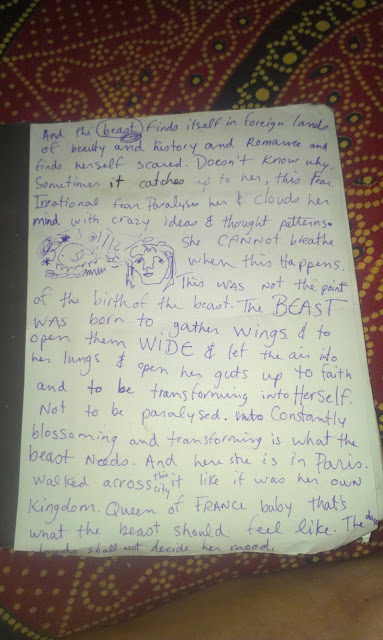 And the beast finds itself in foreign lands
of beauty and history and Romance and
finds herself scared. Doesn't know why.
Sometimes it catches up to her, this fear.
Irrational fear. Paralyse her & clouds her
mind with crazy ideas & thought patterns.
she CANNOT breathe
when this Happens.
This WAS NOT the point
of the birth of the beast. The BEAST
WAS born to gather wings & to
open them WIDE & let the air into
her lungs & open her guts up to faith
and to be transforming into Herself.
Not to be paralysed. Constantly
blossoming and transforming is what the
beast Needs. And here she is in Paris.
walked across this city it like it was her own
Kingdom. Queen of FRANCE baby that's
what the beast should feel like. The
shall not decide her mood.